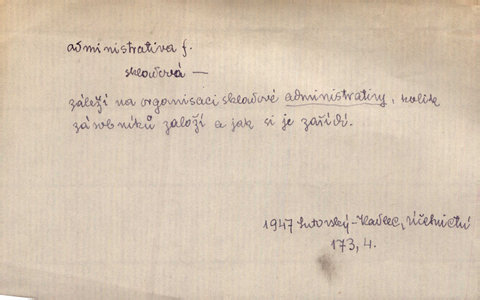 administrativa f.
skladová —
záleží na organisaci skladové administrativy, kolik
zásobníků založí a jak si je zařídí.
1947 Lutovský-Kadlec, Účetnictví
173, 4.